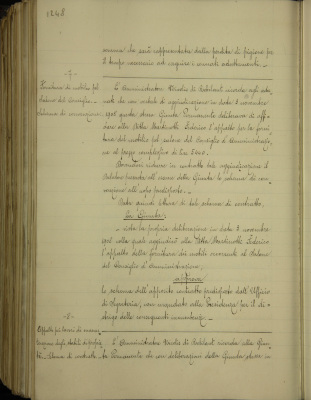 1248
somma che sarà rappresentata dalla perdita di pigione pel
tempo necessario ad eseguire i connati adattamenti.
- 7 -
Fornitura di mobilio pel
Salone del Consiglio -
Schema di convenzione.
L'Amministratore Nicolis di Robilant ricorda agli adu-
nati che con verbale di aggiudicazione in data 3 novembre
1908 questa stessa Giunta Permanente deliberava di affi-
dare alla Ditta Martinotti Federico l'appalto per la forni-
tura del mobilio pel salone del Consiglio d'Amministrazio-
ne al prezzo complessivo di Lire 5000.
Dovendosi ridurre in contratto tale aggiudicazione il
Relatore presenta all'esame della Giunta lo schema di con-
venzione all'uopo predisposto.
Data quindi lettura di tale schema di contratto,
La Giunta;
vista la propria deliberazione in data 3 novembre
1908 colla quale aggiudicò alla Ditta Martinotti Federico
l'appalto della fornitura dei mobili occorrenti al Salone
del Consiglio d'Amministrazione;
approva
lo schema dell'apposito contratto predisposto dall'Ufficio
di Segreteria; con mandato alla Presidenza per il di-
sbrigo delle conseguenti incombenze. -
- 8 -
Appalto pei lavori di manu-
tenzione degli stabili di
- Schema di contratto
L'Amministratore Nicolis di Robilant ricorda alla Giun-
ta Permanente che con deliberazioni della Giunta stessa in